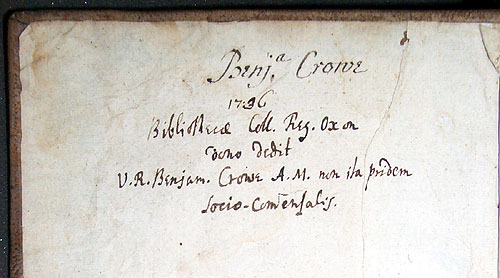 Benj.ª Crowe
1736
Bibliothecæ Coll. Reg. Oxon
dono dedit
V. R. Benjam. Crowe A. M. non ita pridem
Socio-Com̃ensalis.